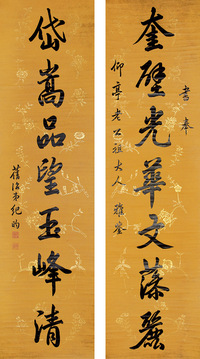 書奉
奎壁光華文藻麗
仰亭老公祖大人 雅鉴
岱嵩品望玉峰清
舊治弟紀昀